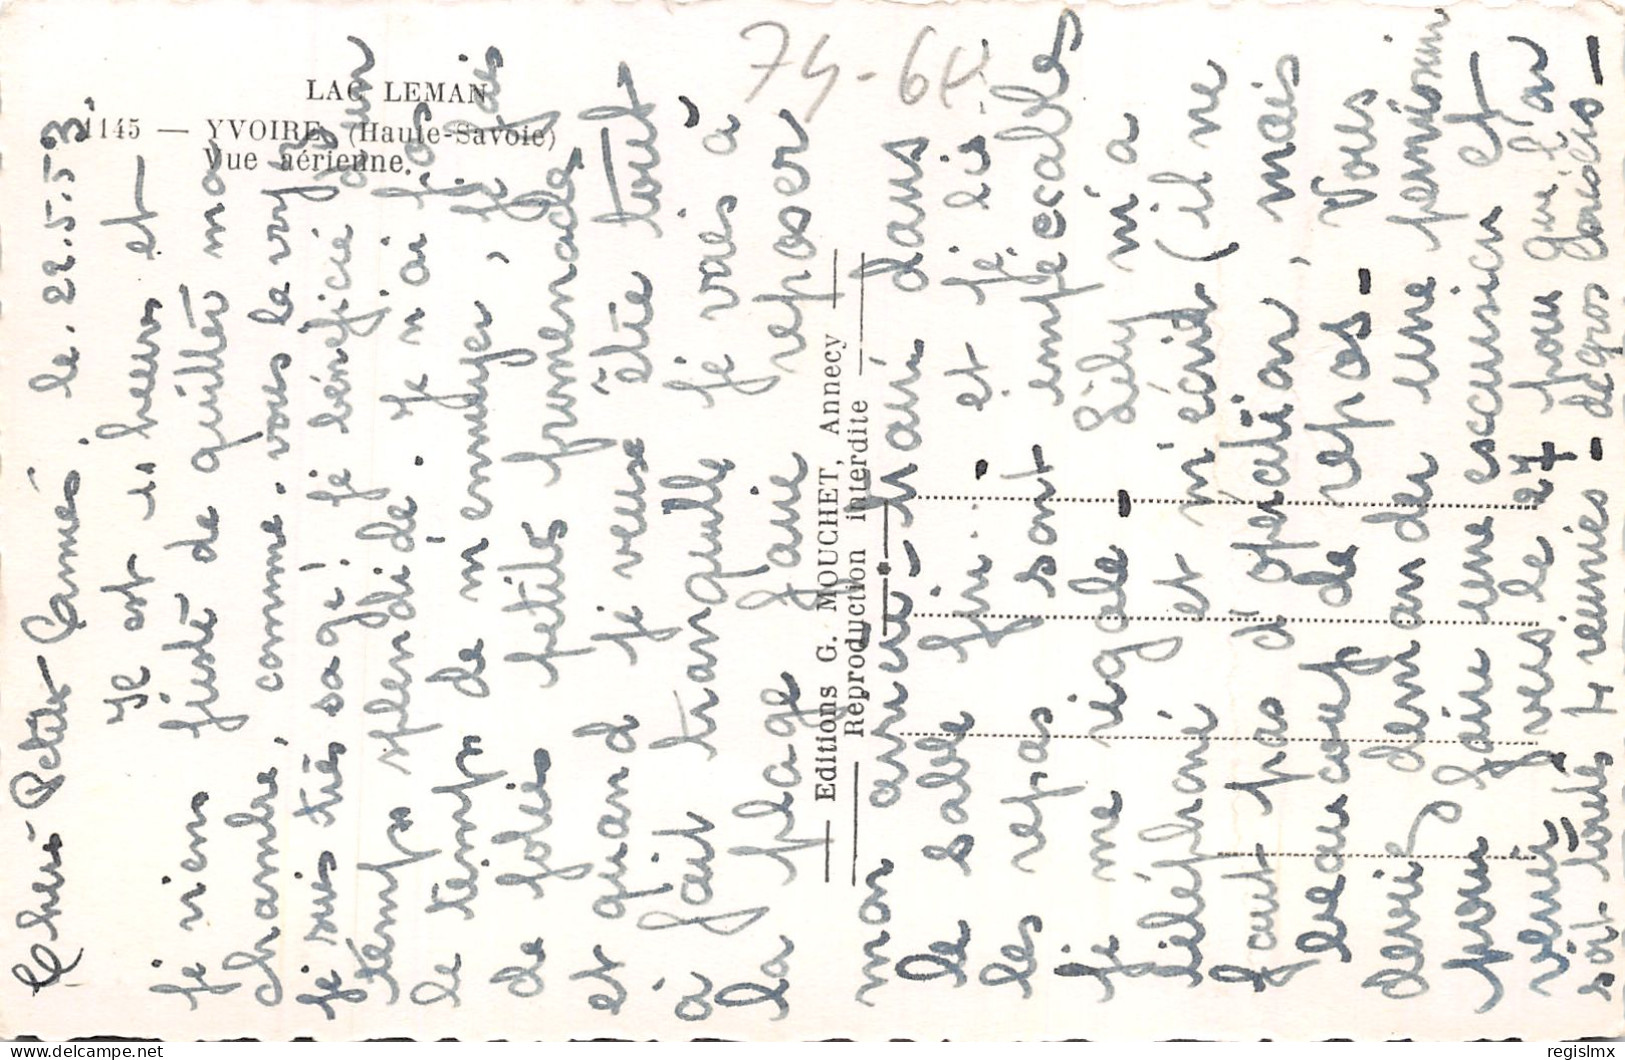 LAC LEMAN
1145 — YVOIRE (Haute-Savoie)
Vue aérienne.
74-64
Editions G. MOUCHET, Annecy
Reproduction interdite
le. 22.5.53.
Chers Petites
Il est 11 heures et
je viens juste de quitter ma
chambre, comme vous le voyez
je suis très sage! je bénéficie d'un
temps splendide. Je n'ai pas
le temps de m'ennuyer, je fais
de jolies petites promenades
et quand je veux être tout
à fait tranquille je vais à
la plage faire reposer
mon dans
le sable fin. et je lis.
les repas sont impeccables
je me régale - Lily m'a
téléphoné et m'écrit (il ne
faut pas d'opération, mais
beaucoup de repos - Vous
devriez demander une permission
pour faire une excursion et
venir vers le 27 pour qu'l'on
soit toutes réunies - de gros baisers -
regislmx